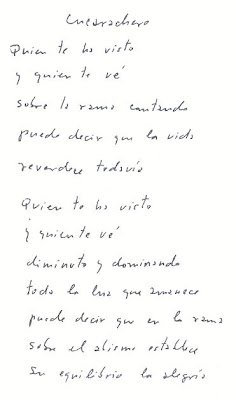 Cucarachero
Quien te ha visto
y quien te vé
sobre la rama cantando
puede decir que la vida
reverdece todavía
Quien te ha visto
y quien te vé
diminuto y dominando
toda la luz que amanece
puede decir que en la rama
sobre el abismo establece
su equilibrio la alegría